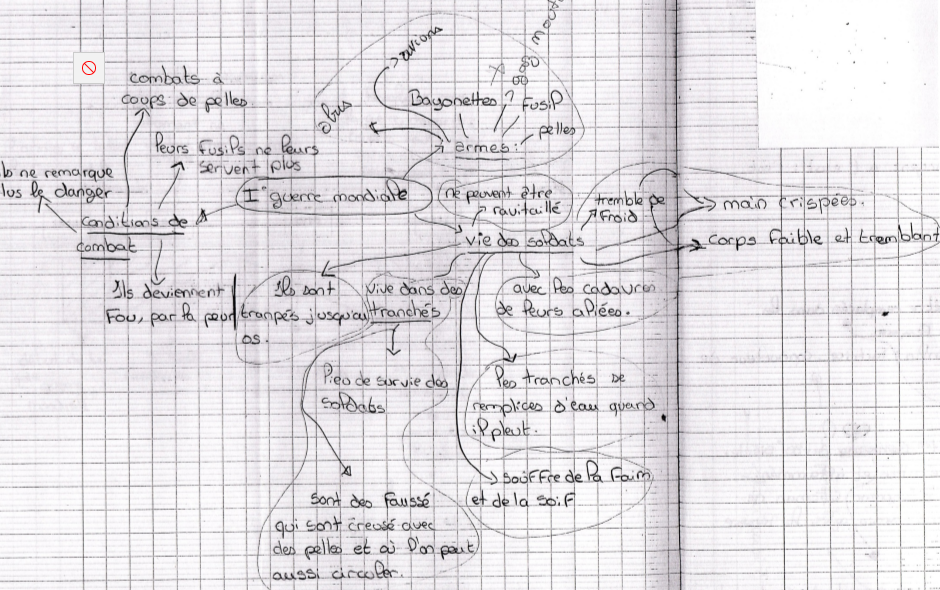 avions
obus
combats à
coups de pelles
Bayonettes
Fusil
pelles
armes :
leurs fusils ne leurs
servent plus
ne remarque
plus le danger
I° guerre mondiale
ne peuvent être
ravitaillé
tremble de
froid
main crispées.
conditions de
combat
vie des soldats
corps faible et tremblant
Ils deviennent
Fou, par la peur
Ils sont
trampés jusqu'au
os.
vive dans des
tranchés
avec les cadavres
de leurs aliées.
lieu de survie des
soldats
les tranchés se
remplices d'eau quand
il pleut.
souffre de la faim
et de la soif
sont des faussé
qui sont creusé avec
des pelles et où l'on peut
aussi circuler.